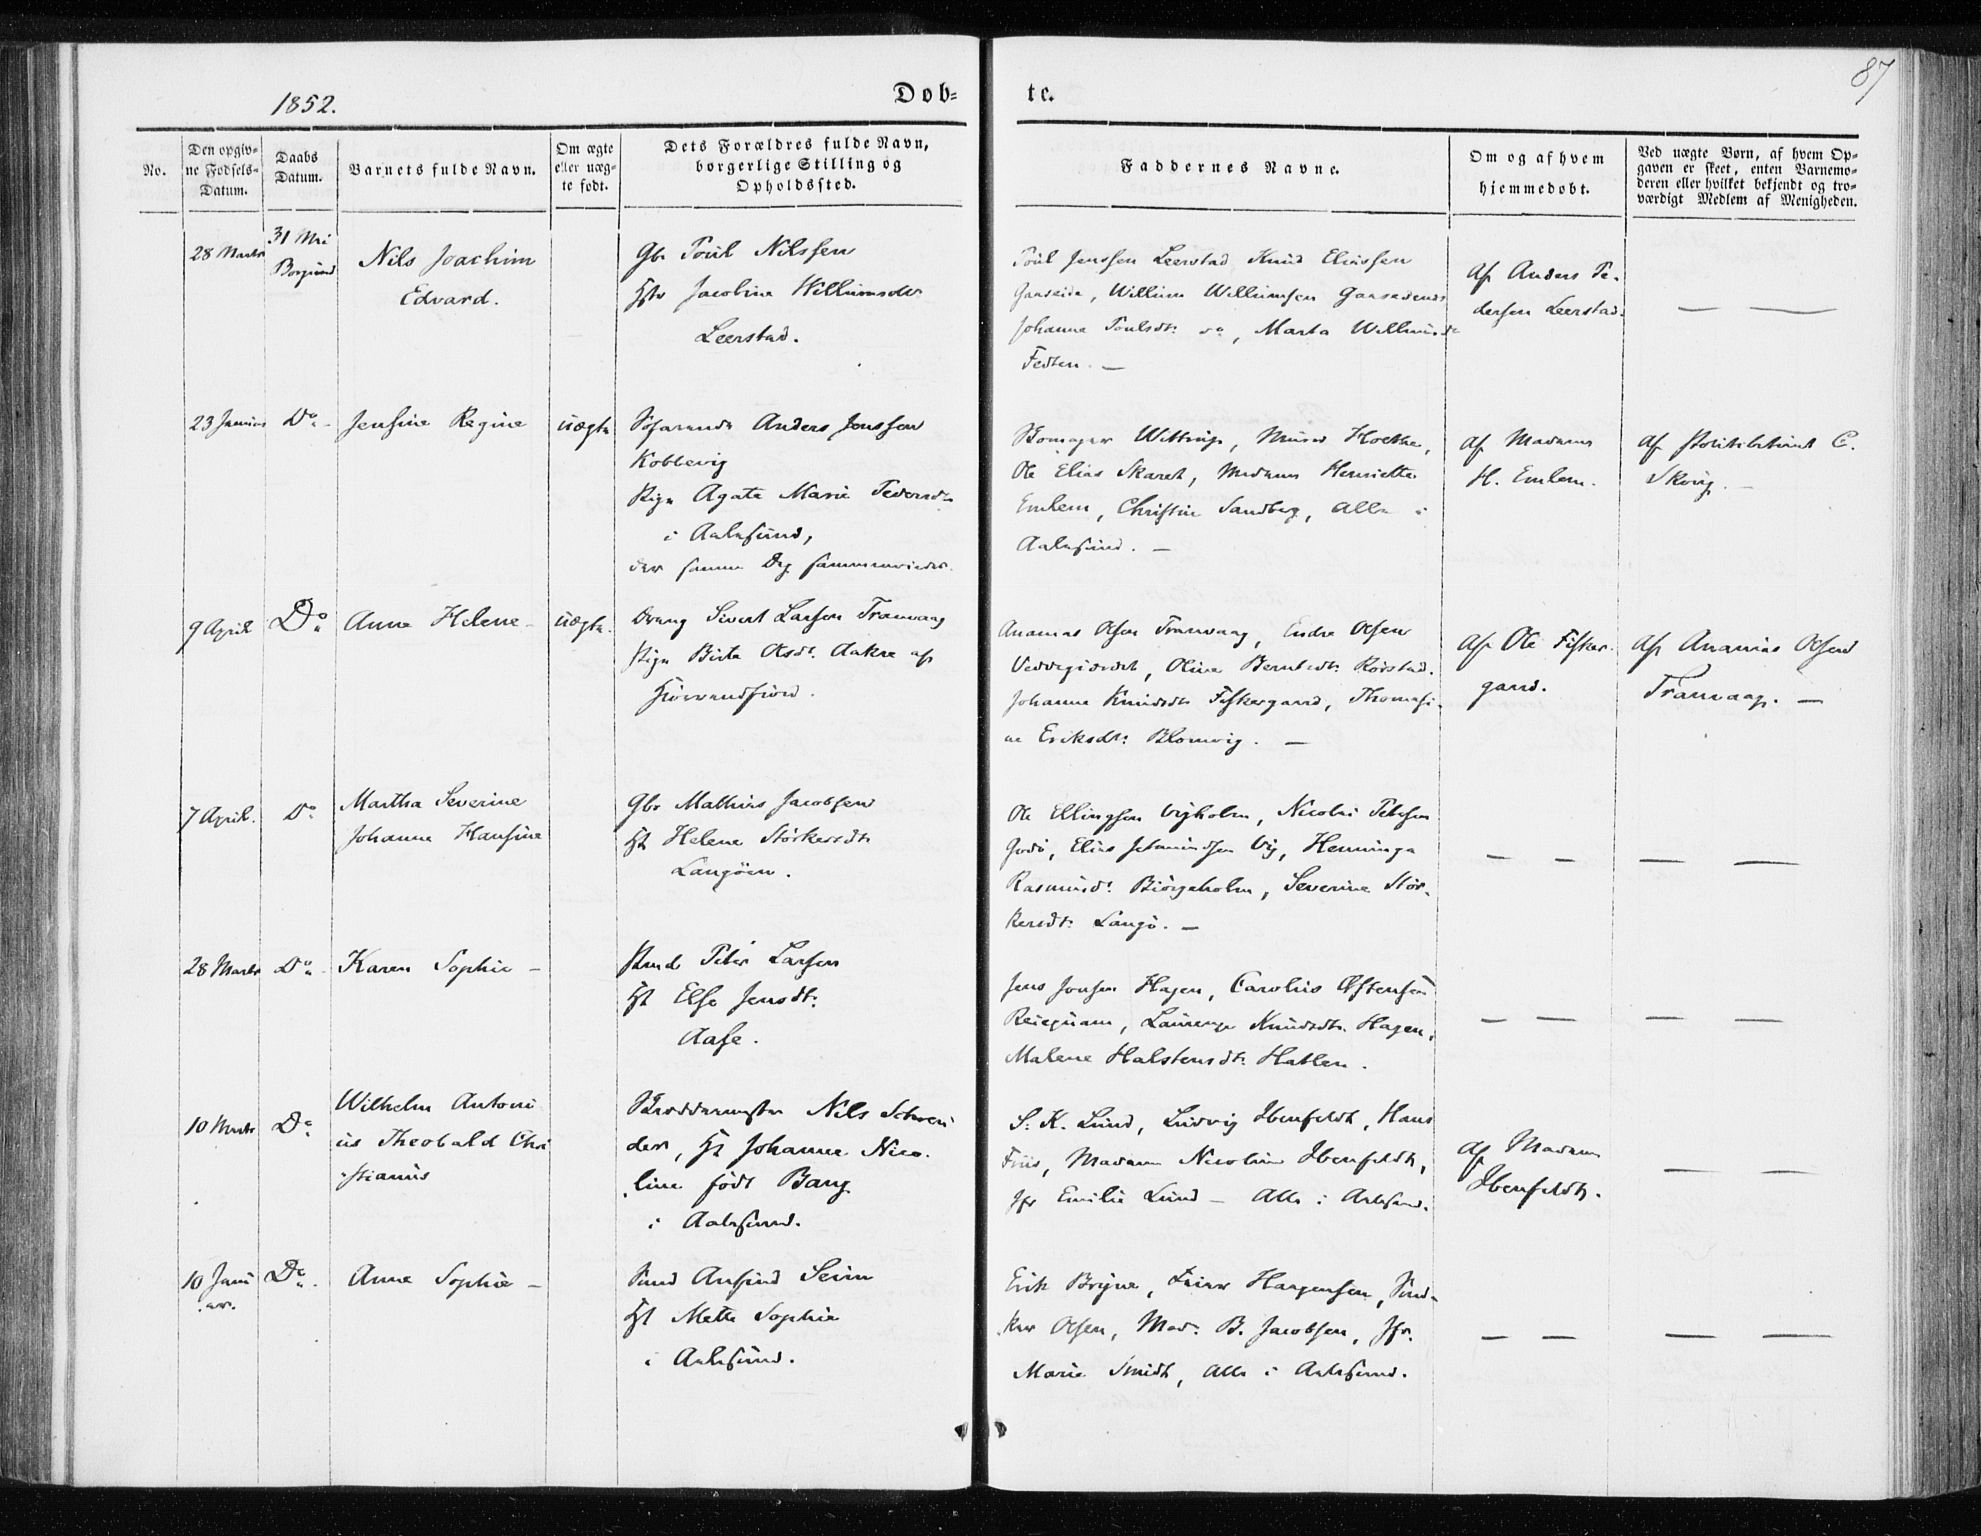 1852.
Døb-
te.
87
No.
Den opgiv-
ne Fødsels-
Datum.
Daabs
Datum.
Barnets fulde Navn.
Om ægte
eller uæg-
te født.
Dets Forældres fulde Navn,
borgerlige Stilling og
Opholdssted.
Faddernes Navne.
Om og af hvem
hjemmedøbt.
Ved uægte Børn, af hvem Op-
gaven er skeet, enten Barnemo-
deren eller hvilket bekjendt og tro-
værdigt Medlem af Menigheden.
28 Marts
31 Mai
Borgund
Nils Joachim
Edvard.
Gbr Poul Nilssen
Hst Jacobine Willumsdtr
Leerstad.
Poul Jenssen Leerstad Knud Eliassen
Gaaseide, Willum Willumsen
Johanne Poulsdt: do, Marta
Fedten. —
af Anders Pe-
dersen Leerstad.
23 Januar
Do
Jensine Regine
uægte
Søfarende Anders Jonssen
Koblevig
Pige Agate Marie Pedersdtr
i Aalesund,
der samme Dag
Wittrup,
Ole Elias Skaret, Madam Henriette
Emlem, Christine Sandberg, Alle i
Aalesund. —
af Madame
H. Emlem.
af Politibetient C.
9 April
Do
Anne Helene -
uægte.
Dreng Sivert Larsen Tranvaag
Pige Birte Olsdt. Aakre af
Ananias Olsen Tranvaag, Endre Olsen
Oline Berntsdt: Rørstad.
Johanne Knudsdt: Fiskergaard, Thomasi-
ne Eriksdt: Blomvig. —
af Ole Fisker-
gaard.
af Ananias Olsen
Tranvaag. —
7 April.
Do
Martha Severine
Johanne Hansine
Gbr Mathias Jacobsen
Hst Helene Størkersdt:
Langöen.
Ole Ellingsen Vigholm, Nicolai Petersen
Godø, Elias Vig, Henninga
Rasmusdt: Biørgeholm, Severine Stør-
kersdt: Langö. —
28 Marts
Do
Karen Sophie —
Peter Larsen
Hst Else Jensdt:
Aase.
Jens Jonsen Hagen, Carolus
Knudsdt: Hagen,
Malene Halstensdt: Hatlen.
10 Marts
Do
Wilhelm Antoni
us Theobald Chri
stianus
Nils Schrøi
der, Hst Johanne Nico-
line født Bang
i Aalesund.
S. K. Lund, Ludvig Ibenfeldt, Hans
Friis, Madam Nicoline Ibenfeldt,
Jfr Emilie Lund — Alle i Aalesund.
af Madam
Ibenfeldt.
10 Janu
ar.
Do
Anne Sophie —
Ansind Seim
Hst Mette Sophie
i Aalesund.
Erik Brÿne, Haagensen,
Olsen, Mad: B. Jacobsen, Jfr.
Marie Smidt, Alle i Aalesund.